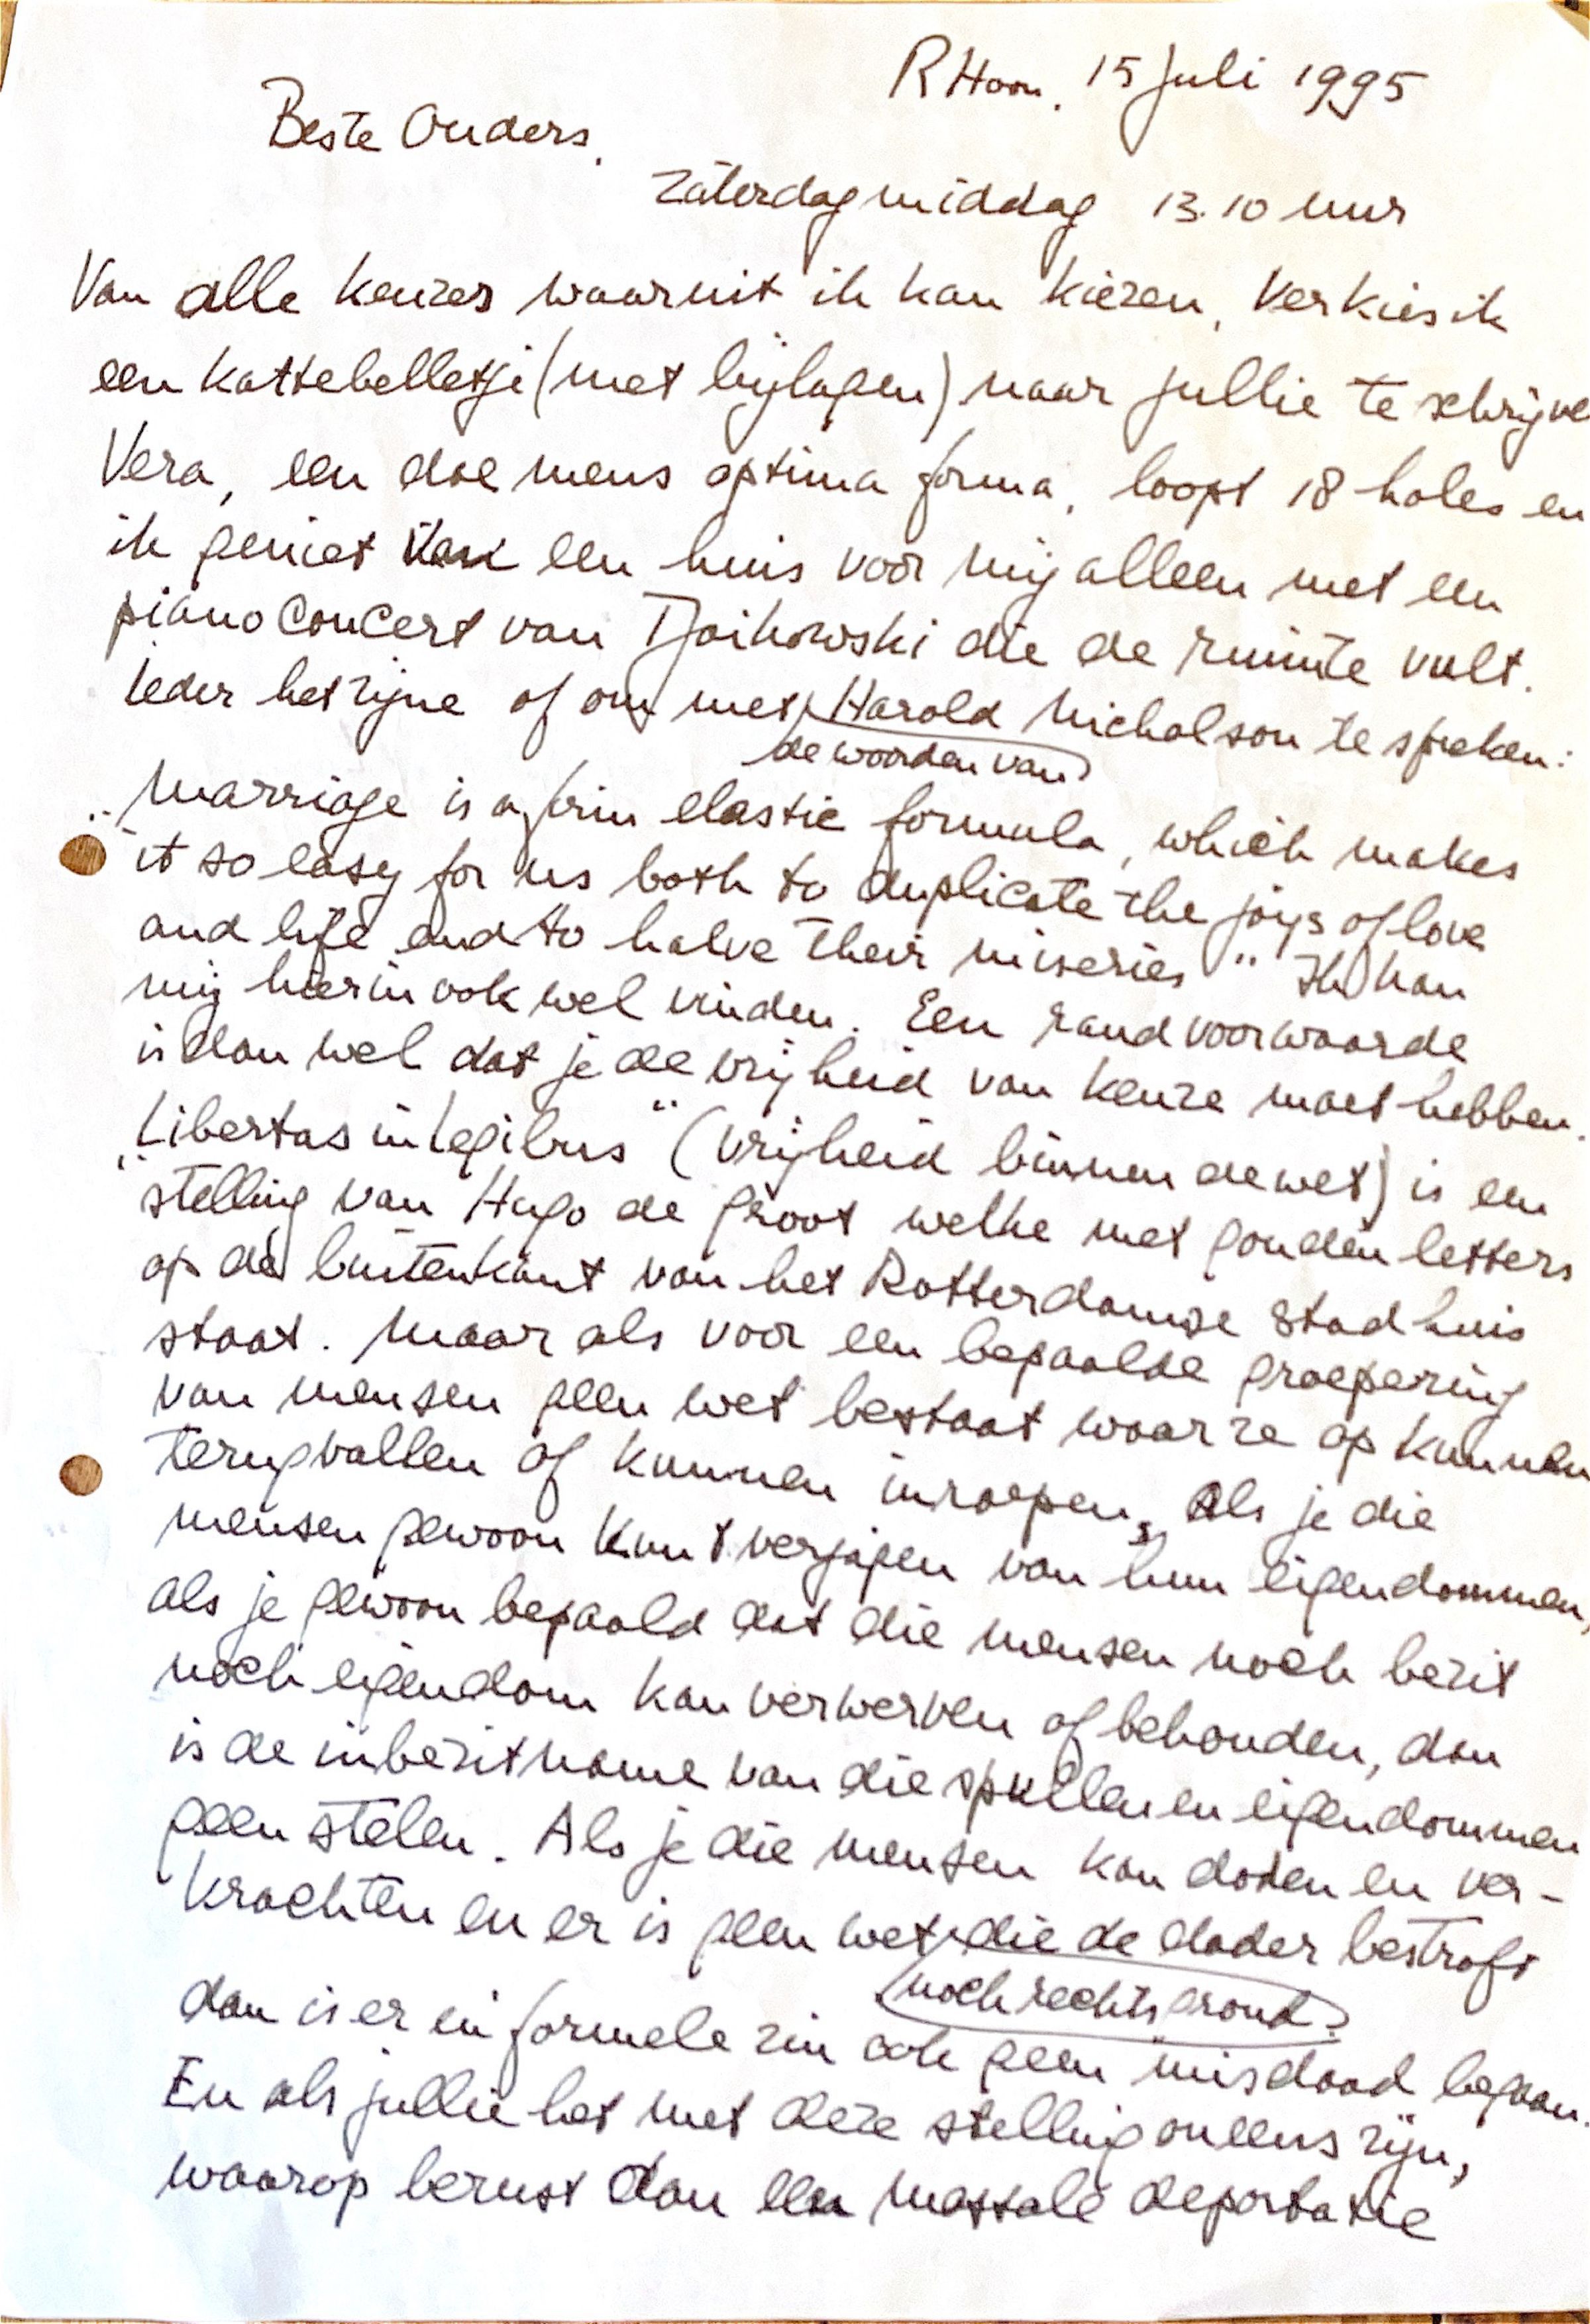 RHoon. 15 Juli 1995
Beste Ouders.
Zaterdagmiddag 13.10 uur
Van alle keuzes waaruit ik kan kiezen, verkies ik
een kattebelletje (met bijlagen) naar jullie te schrijve
Vera, een doe mens optima forma, loopt 18 holes en
ik geniet van een huis voor mij alleen met een
piano Concert van Tjaikowski die de ruimte vult.
Ieder het zijne of om met Harold Nicholson te spreken:
de woorden van
„Marriage is a firm elastic formula, which makes
it so easy for us both to duplicate the joys of love
and life and to halve their miseries" Ik kan
mij hierin ook wel vinden. Een randvoorwaarde
is dan wel dat je de vrijheid van keuze moet hebben.
„Libertas in Legibus" (vrijheid binnen de wet) is een
stelling van Hugo de Groot welke met gouden letters
op de buitenkant van het Rotterdamse Stadhuis
staat. Maar als voor een bepaalde groepering
van mensen geen wet bestaat waar ze op kunnen
terugvallen of kunnen inroepen, Als je die
mensen gewoon kunt verjagen van hun eigendommen,
als je gewoon bepaald dat die mensen noch bezit
noch eigendom kan verwerven of behouden, dan
is de inbezitname van die spullen en eigendommen
geen stelen. Als je die mensen kan doden en ver-
krachten en er is geen wet die de dader bestraft
noch rechtsgrond
dan is er in formele zin ook geen misdaad begaan.
En als jullie het met deze stelling oneens zijn,
waarop berust dan een massale deportatie